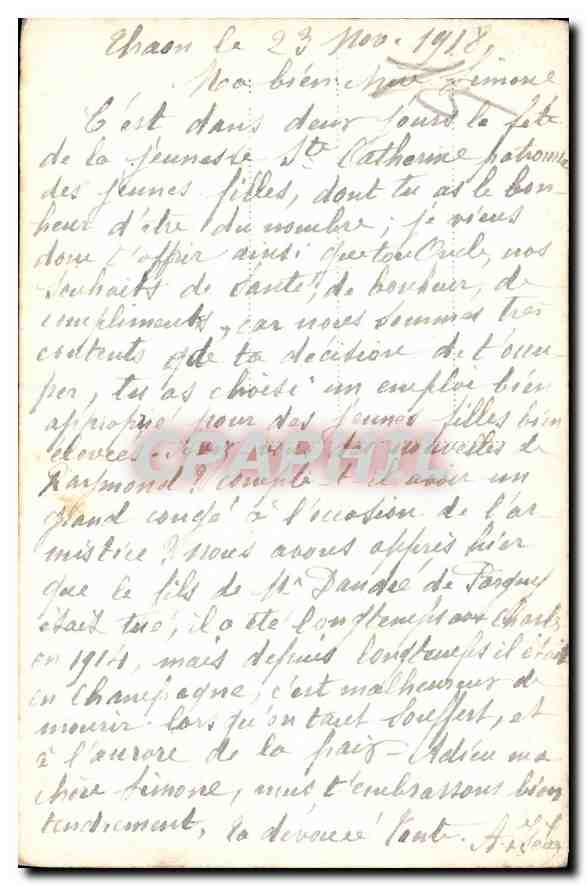 Thaon le 23 Nov. 1918,
Ma bien chère Simone
C'est dans deux jours la fête
de la jeunesse Ste Catherine patronne
des jeunes filles, dont tu as le bon-
heur d'être du nombre; je viens
donc t'offrir ainsi que ton Oncle, nos
souhaits de santé, de bonheur, de
compliments, car nous sommes très
contents de ta décision de t'occu-
per, tu as choisi un emploi bien
approprié pour des jeunes filles bien
élevées. Avez vous des nouvelles de
Raymond? compte-t-il avoir un
grand congé à l'occasion de l'ar-
mistice? nous avons appris hier
que le fils de Mr de
était tué, il a été longtemps
en 1914, mais depuis longtemps il était
en Champagne, c'est malheureux de
mourir lorsqu'on tant souffert, et
à l'aurore de la paix - Adieu ma
chère Simone, nous t'embrassons bien
tendrement, ta dévouée Tante.
CPAPHIL